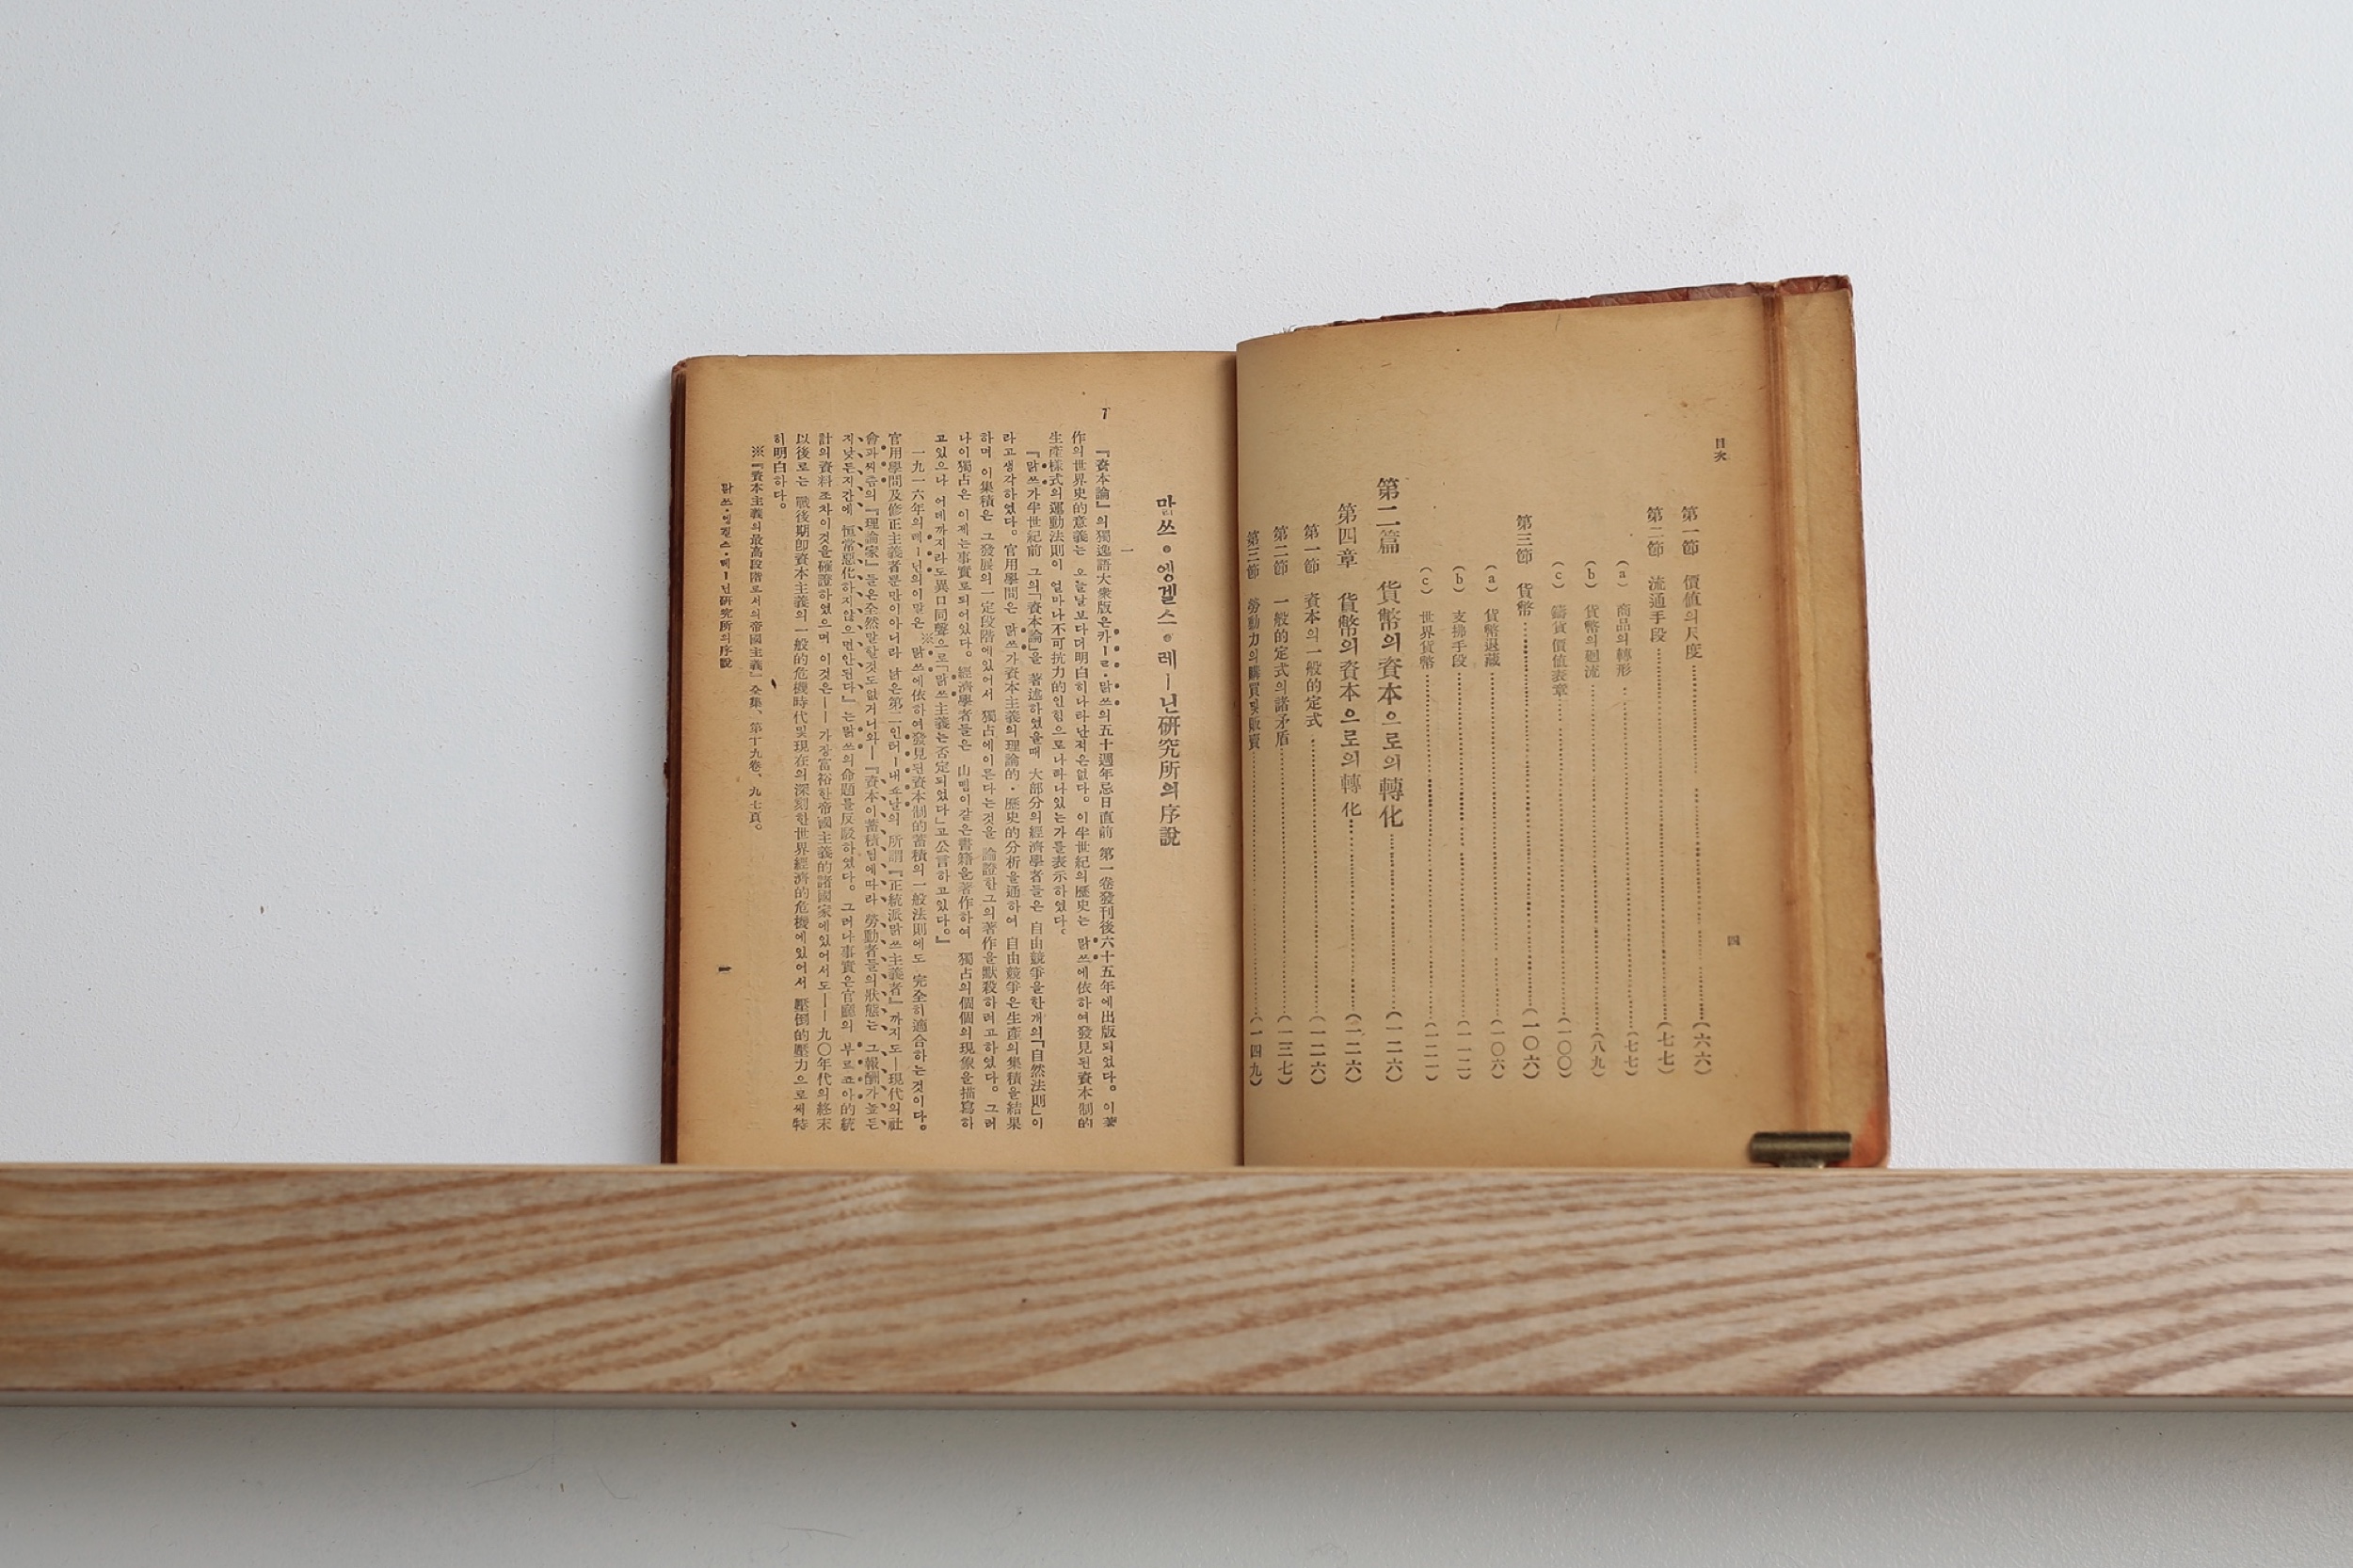 目次
第一節 價値의尺度……(六六)
第二節 流通手段……(七七)
(a) 商品의轉形……(七七)
(b) 貨幣의廻流……(八九)
(c) 鑄貨 價値表章……(一〇〇)
第三節 貨幣……(一〇六)
(a) 貨幣退藏……(一〇六)
(b) 支拂手段……(一一二)
(c) 世界貨幣……(一二一)
第二篇 貨幣의資本으로의轉化……(一二六)
第四章 貨幣의資本으로의轉化……(一二六)
第一節 資本의一般的定式……(一二六)
第二節 一般的定式의諸矛盾……(一三七)
第三節 勞動力의購買및販賣……(一四九)
四
맑쓰•엥겔스•레—닌硏究所의序說
一
『資本論』의獨逸語大衆版은카—ㄹ·맑쓰의五十週年忌日直前 第一卷發刊後六十五年에出版되었다。이著
作의世界史的意義는 오늘날보다더明白히나타난적은없다。이半世紀의歷史는 맑쓰에依하여發見된資本制的
生產樣式의運動法則이 얼마나不可抗力的인힘으로나타나있는가를表示하였다。
『맑쓰가半世紀前 그의「資本論」을 著述하였을때 大部分의經濟學者들은 自由競爭을한개의「自然法則」이
라고생각하였다。官用學問은 맑쓰가資本主義의理論的·歷史的分析을通하여 自由競爭은生產의集積을結果
하며 이集積은 그發展의一定段階에있어서 獨占에이른다는것을 論證한그의著作을默殺하려고하였다。그러
나이獨占은 이제는事實로되어있다。經濟學者들은 山떼미같은書籍을著作하여 獨占의個個의現象을描寫하
고있으나 어데까지라도異口同聲으로「맑쓰主義는否定되었다」고公言하고있다。』
一九一六年의레—닌의이말은 맑쓰에依하여發見된資本制的蓄積의一般法則에도 完全히適合하는것이다。
官用學問及修正主義者뿐만이아니라 낡은第二인터—내쇼날의 所謂『正統派맑쓰主義者』까지도—現代의社
會파씨즘의『理論家』들은全然말할것도없거니와—『資本이蓄積됨에따라 勞動者들의狀態는 그報酬가높든
지낮든지간에 恒常惡化하지않으면안된다』는맑쓰의命題를反駁하였다。그러나事實은官廳의 부르죠아的統
計의資料조차이것을確證하였으며 이것은—— 가장富裕한帝國主義的諸國家에있어서도——九〇年代의終末
以後로는 戰後期卽資本主義의一般的危機時代및現在의深刻한世界經濟的危機에있어서 壓倒的壓力으로써特
히明白하다。
※『資本主義의最高段階로서의帝國主義』全集、第十九卷、九七頁。
맑쓰·엥겔스·레—닌硏究所의序說
一